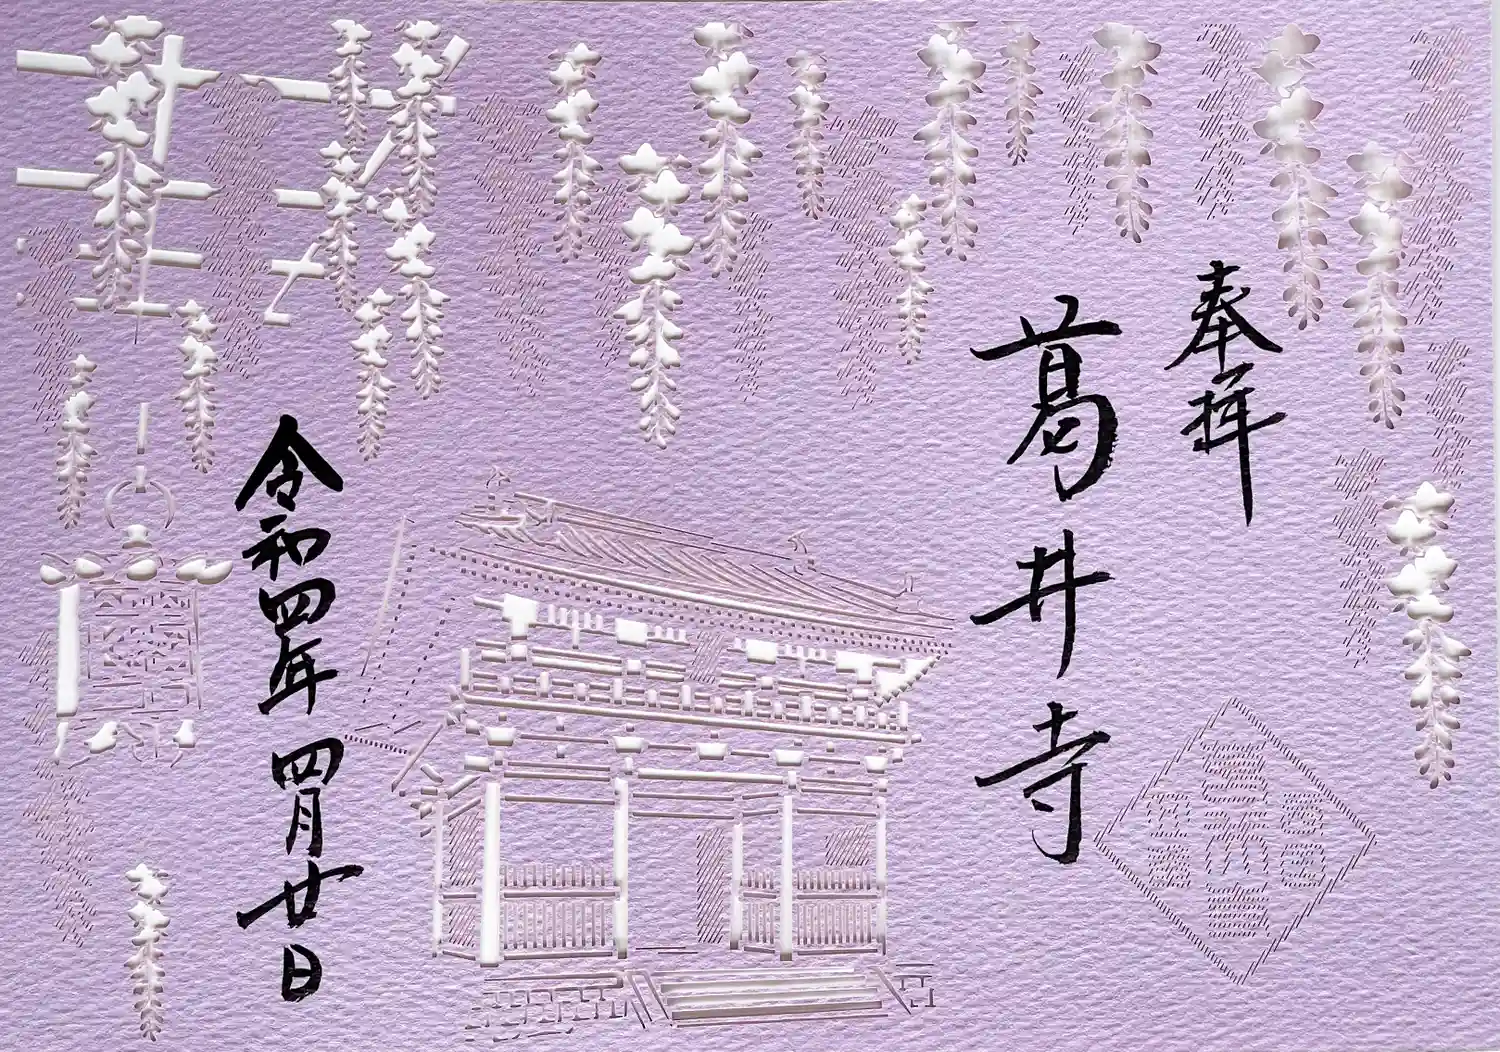 奉拝
葛井寺
令和四年四月廿日